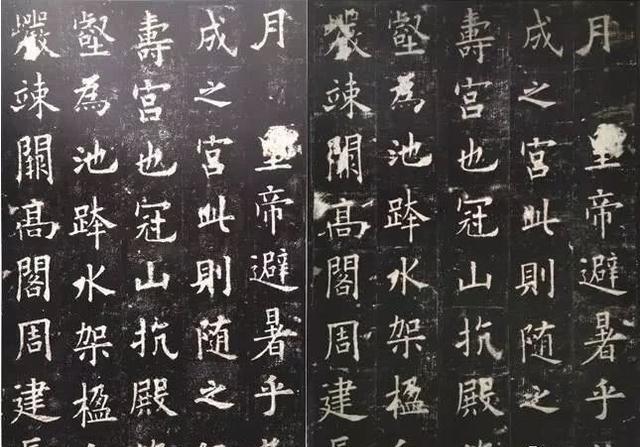 月皇帝避暑乎
成之宮此則随之
壽宮也冠山抗殿
壑為池跨水架楹
巖竦闕高閣周建
月皇帝避暑乎
成之宮此則随之
壽宮也冠山抗殿
壑為池跨水架楹
巖竦闕高閣周建